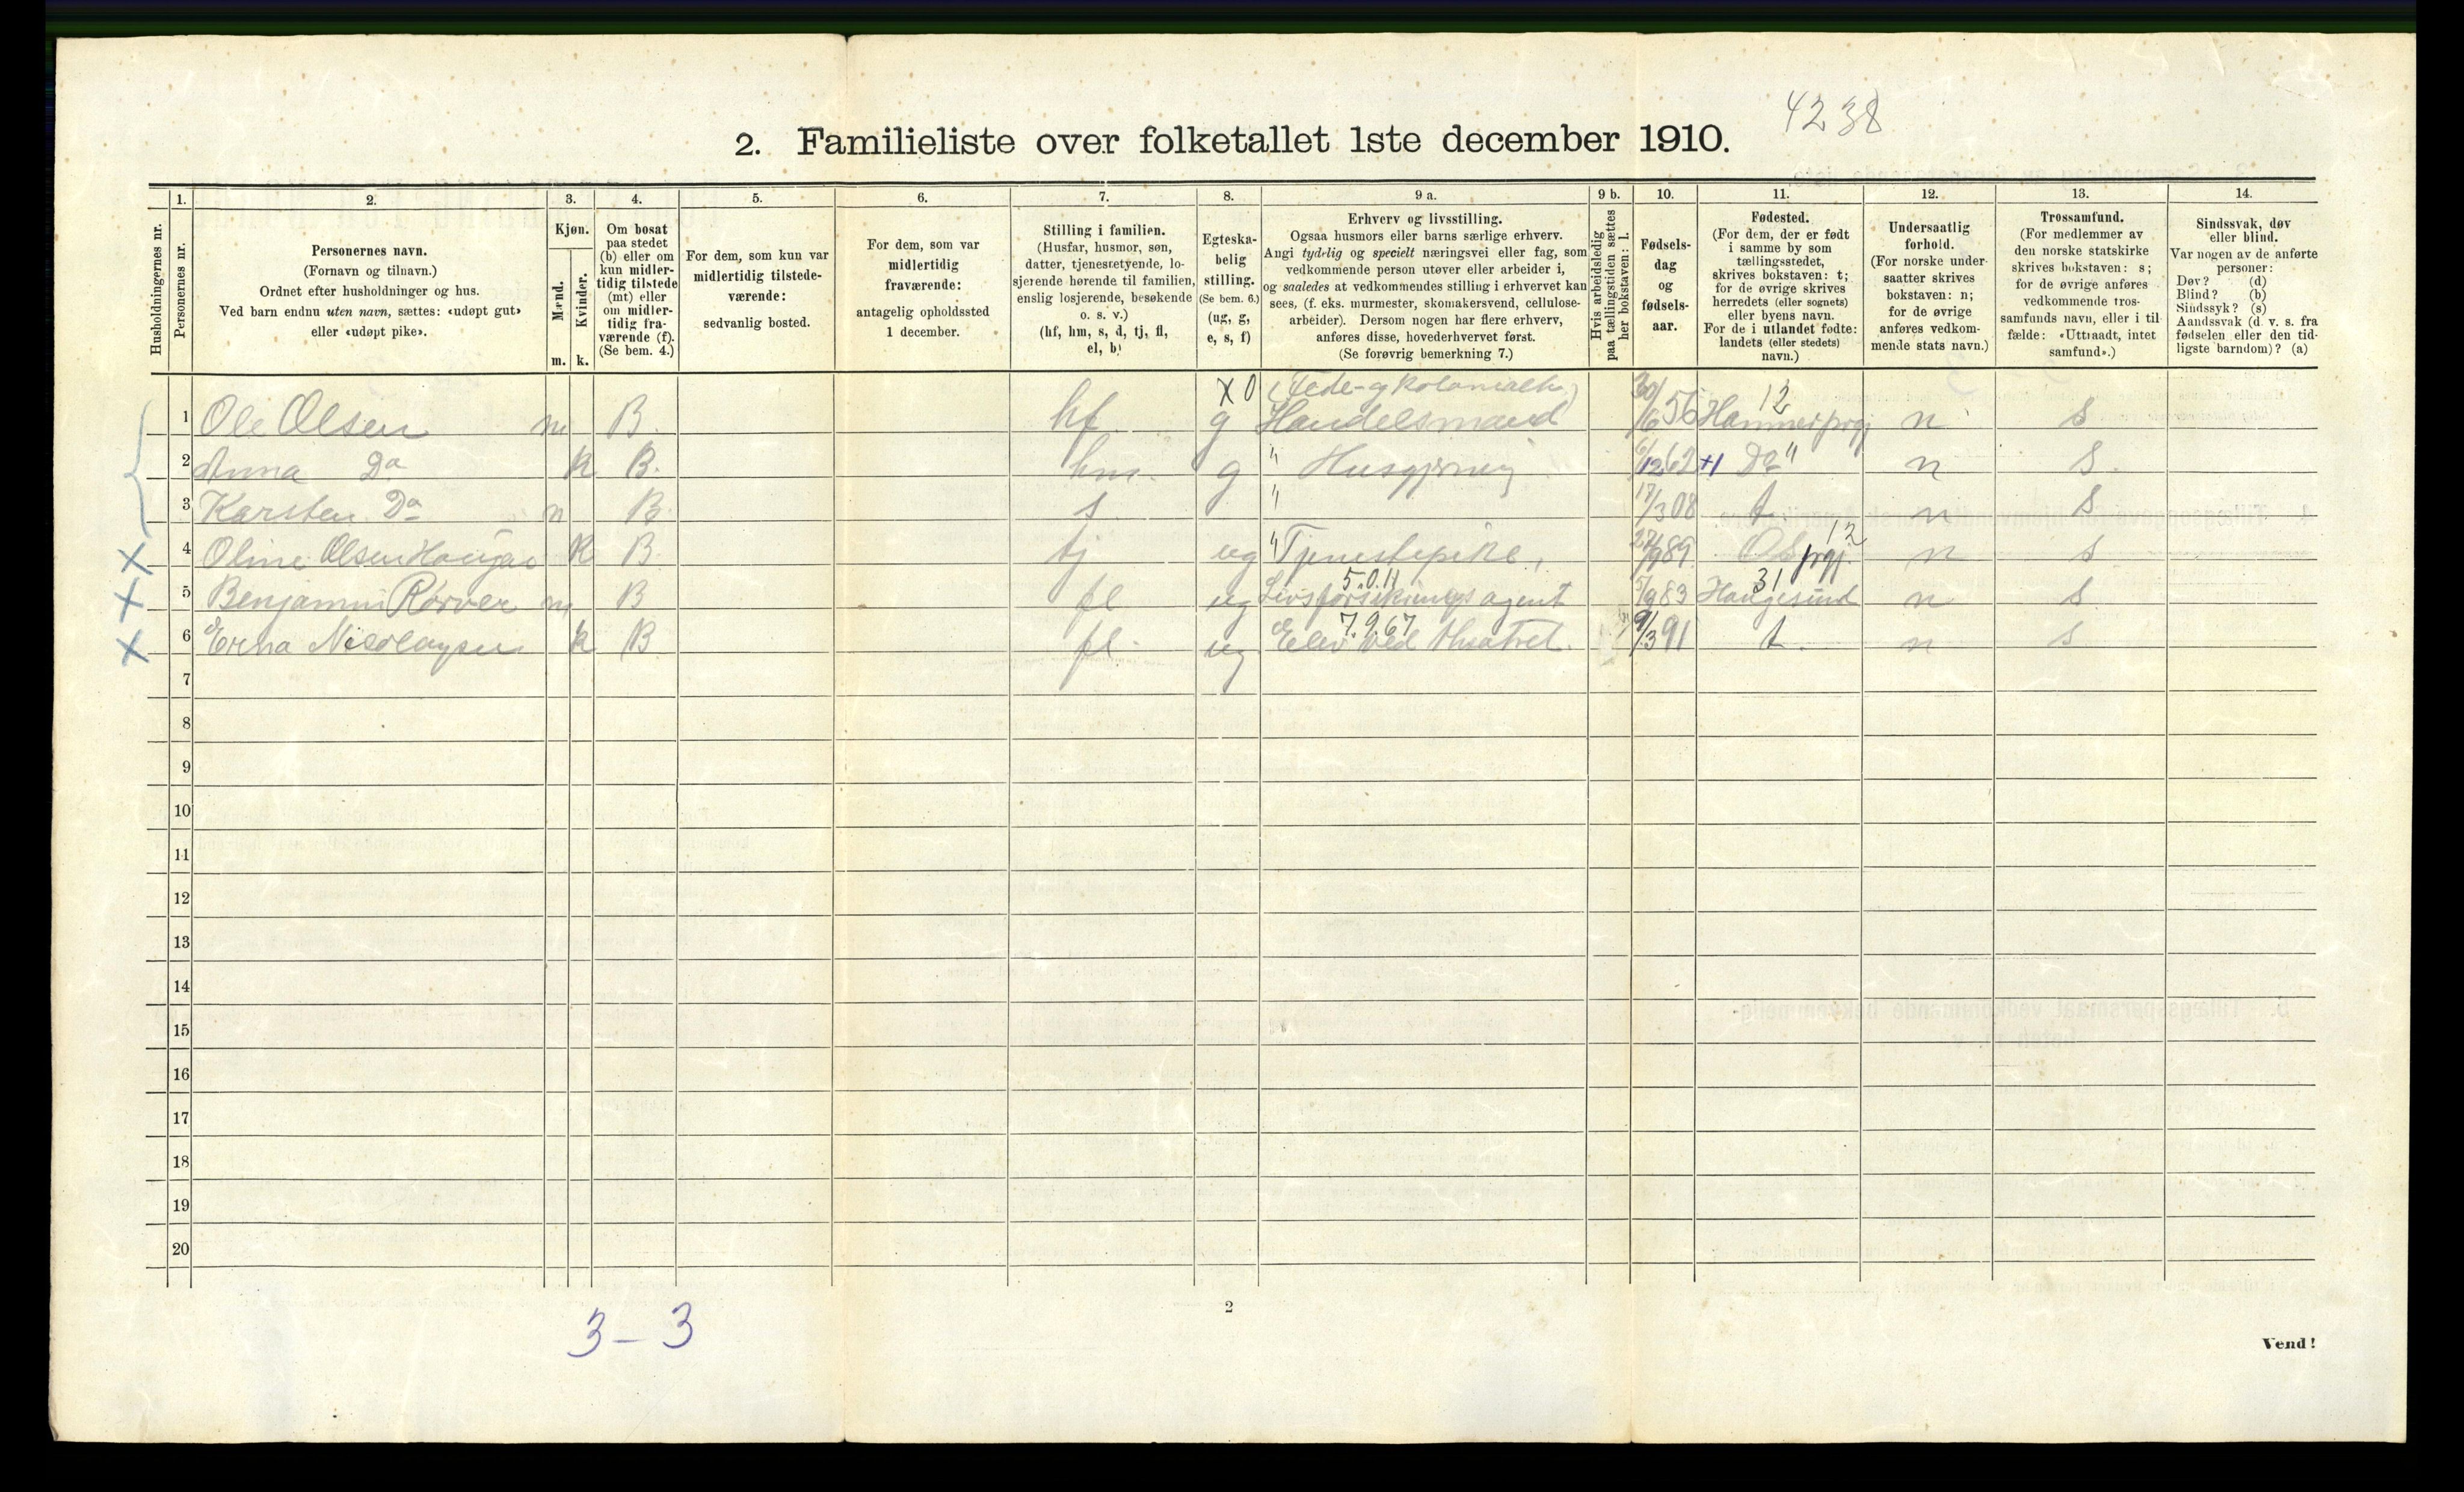 4238
2. Familieliste over folketallet 1ste december 1910.
Husholdningernes nr.
1. Personernes nr.
2. Personernes navn.
(Fornavn og tilnavn.)
Ordnet efter husholdninger og hus.
Ved barn endnu uten navn, sættes: «udøpt gut»
eller «udøpt pike».
3. Kjøn.
Mænd. m.
Kvinder. k.
4. Om bosat
paa stedet
(b) eller om
kun midler-
tidig tilstede
(mt) eller
om midler-
tidig fra-
værende (f).
(Se bem. 4.)
5. For dem, som kun var
midlertidig tilstede-
værende:
sedvanlig bosted.
6. For dem, som var
midlertidig
fraværende:
antagelig opholdssted
1 december.
7. Stilling i familien.
(Husfar, husmor, søn,
datter, tjenestetyende, lo-
sjerende hørende til familien,
enslig losjerende, besøkende
o. s. v.)
(hf, hm, s, d, tj, fl,
el, b)
8. Egteska-
belig
stilling.
(Se bem. 6.)
(ug, g,
e, s, f)
9 a. Erhverv og livsstilling.
Ogsaa husmors eller barns særlige erhverv.
Angi tydelig og specielt næringsvei eller fag, som
vedkommende person utøver eller arbeider i,
og saaledes at vedkommendes stilling i erhvervet kan
sees, (f. eks. murmester, skomakersvend, cellulose-
arbeider). Dersom nogen har flere erhverv,
anføres disse, hovederhvervet først.
(Se forøvrig bemerkning 7.)
9 b. Hvis arbeidsledig
paa tællingstiden sættes
her bokstaven: l.
10. Fødsels-
dag
og
fødsels-
aar.
11. Fødested.
(For dem, der er født
i samme by som
tællingsstedet,
skrives bokstaven: t;
for de øvrige skrives
herredets (eller sognets)
eller byens navn.
For de i utlandet fødte:
landets (eller stedets)
navn.)
12. Undersaatlig
forhold.
(For norske under-
saatter skrives
bokstaven: n;
for de øvrige
anføres vedkom-
mende stats navn.)
13. Trossamfund.
(For medlemmer av
den norske statskirke
skrives bokstaven: s;
for de øvrige anføres
vedkommende tros-
samfunds navn, eller i til-
fælde: «Uttraadt, intet
samfund».)
14. Sindssvak, døv
eller blind.
Var nogen av de anførte
personer:
Døv? (d)
Blind? (b)
Sindssyk? (s)
Aandssvak (d. v. s. fra
fødselen eller den tid-
ligste barndom)? (a)
X 0 12
1 Ole Olsen m B. hf. g Handelsmand 30/6 56 Hammer prgj n s
2 Anna Do k B. hm. g " Husgjerning 6/12 62 +1 Do " n s.
3 Karsten Do m B. s " 17/3 08 t n s
12
X 4 Oline Olsen k B. tj ug " Tjenestepike, 27/9 89 prgj. n s
5.0.11 31
X 5 Benjamin Rörver m B fl ug Livsforsikrings agent 5/9 83 Haugesund n s
7.9.67
X 6 Erna Nicolaysen k B fl. ug Elev ved theatret. 9/3 91 t. n s
7
8
9
10
11
12
13
14
15
16
17
18
19
20
3 – 3
2
Vend!